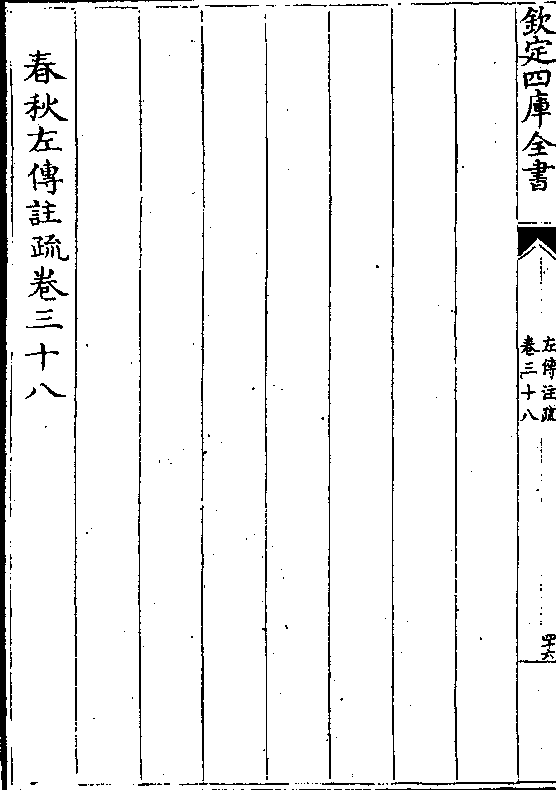 欽定四庫全書
左傳注疏
卷三十八
四十六
春秋左傳註疏卷三十八